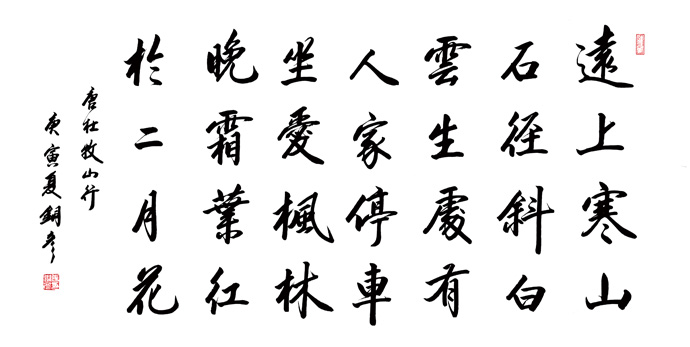 遠上寒山
石徑斜白
雲生處有
人家停車
坐愛楓林
晚霜葉紅
於二月花
唐杜牧山行
庚寅夏銅